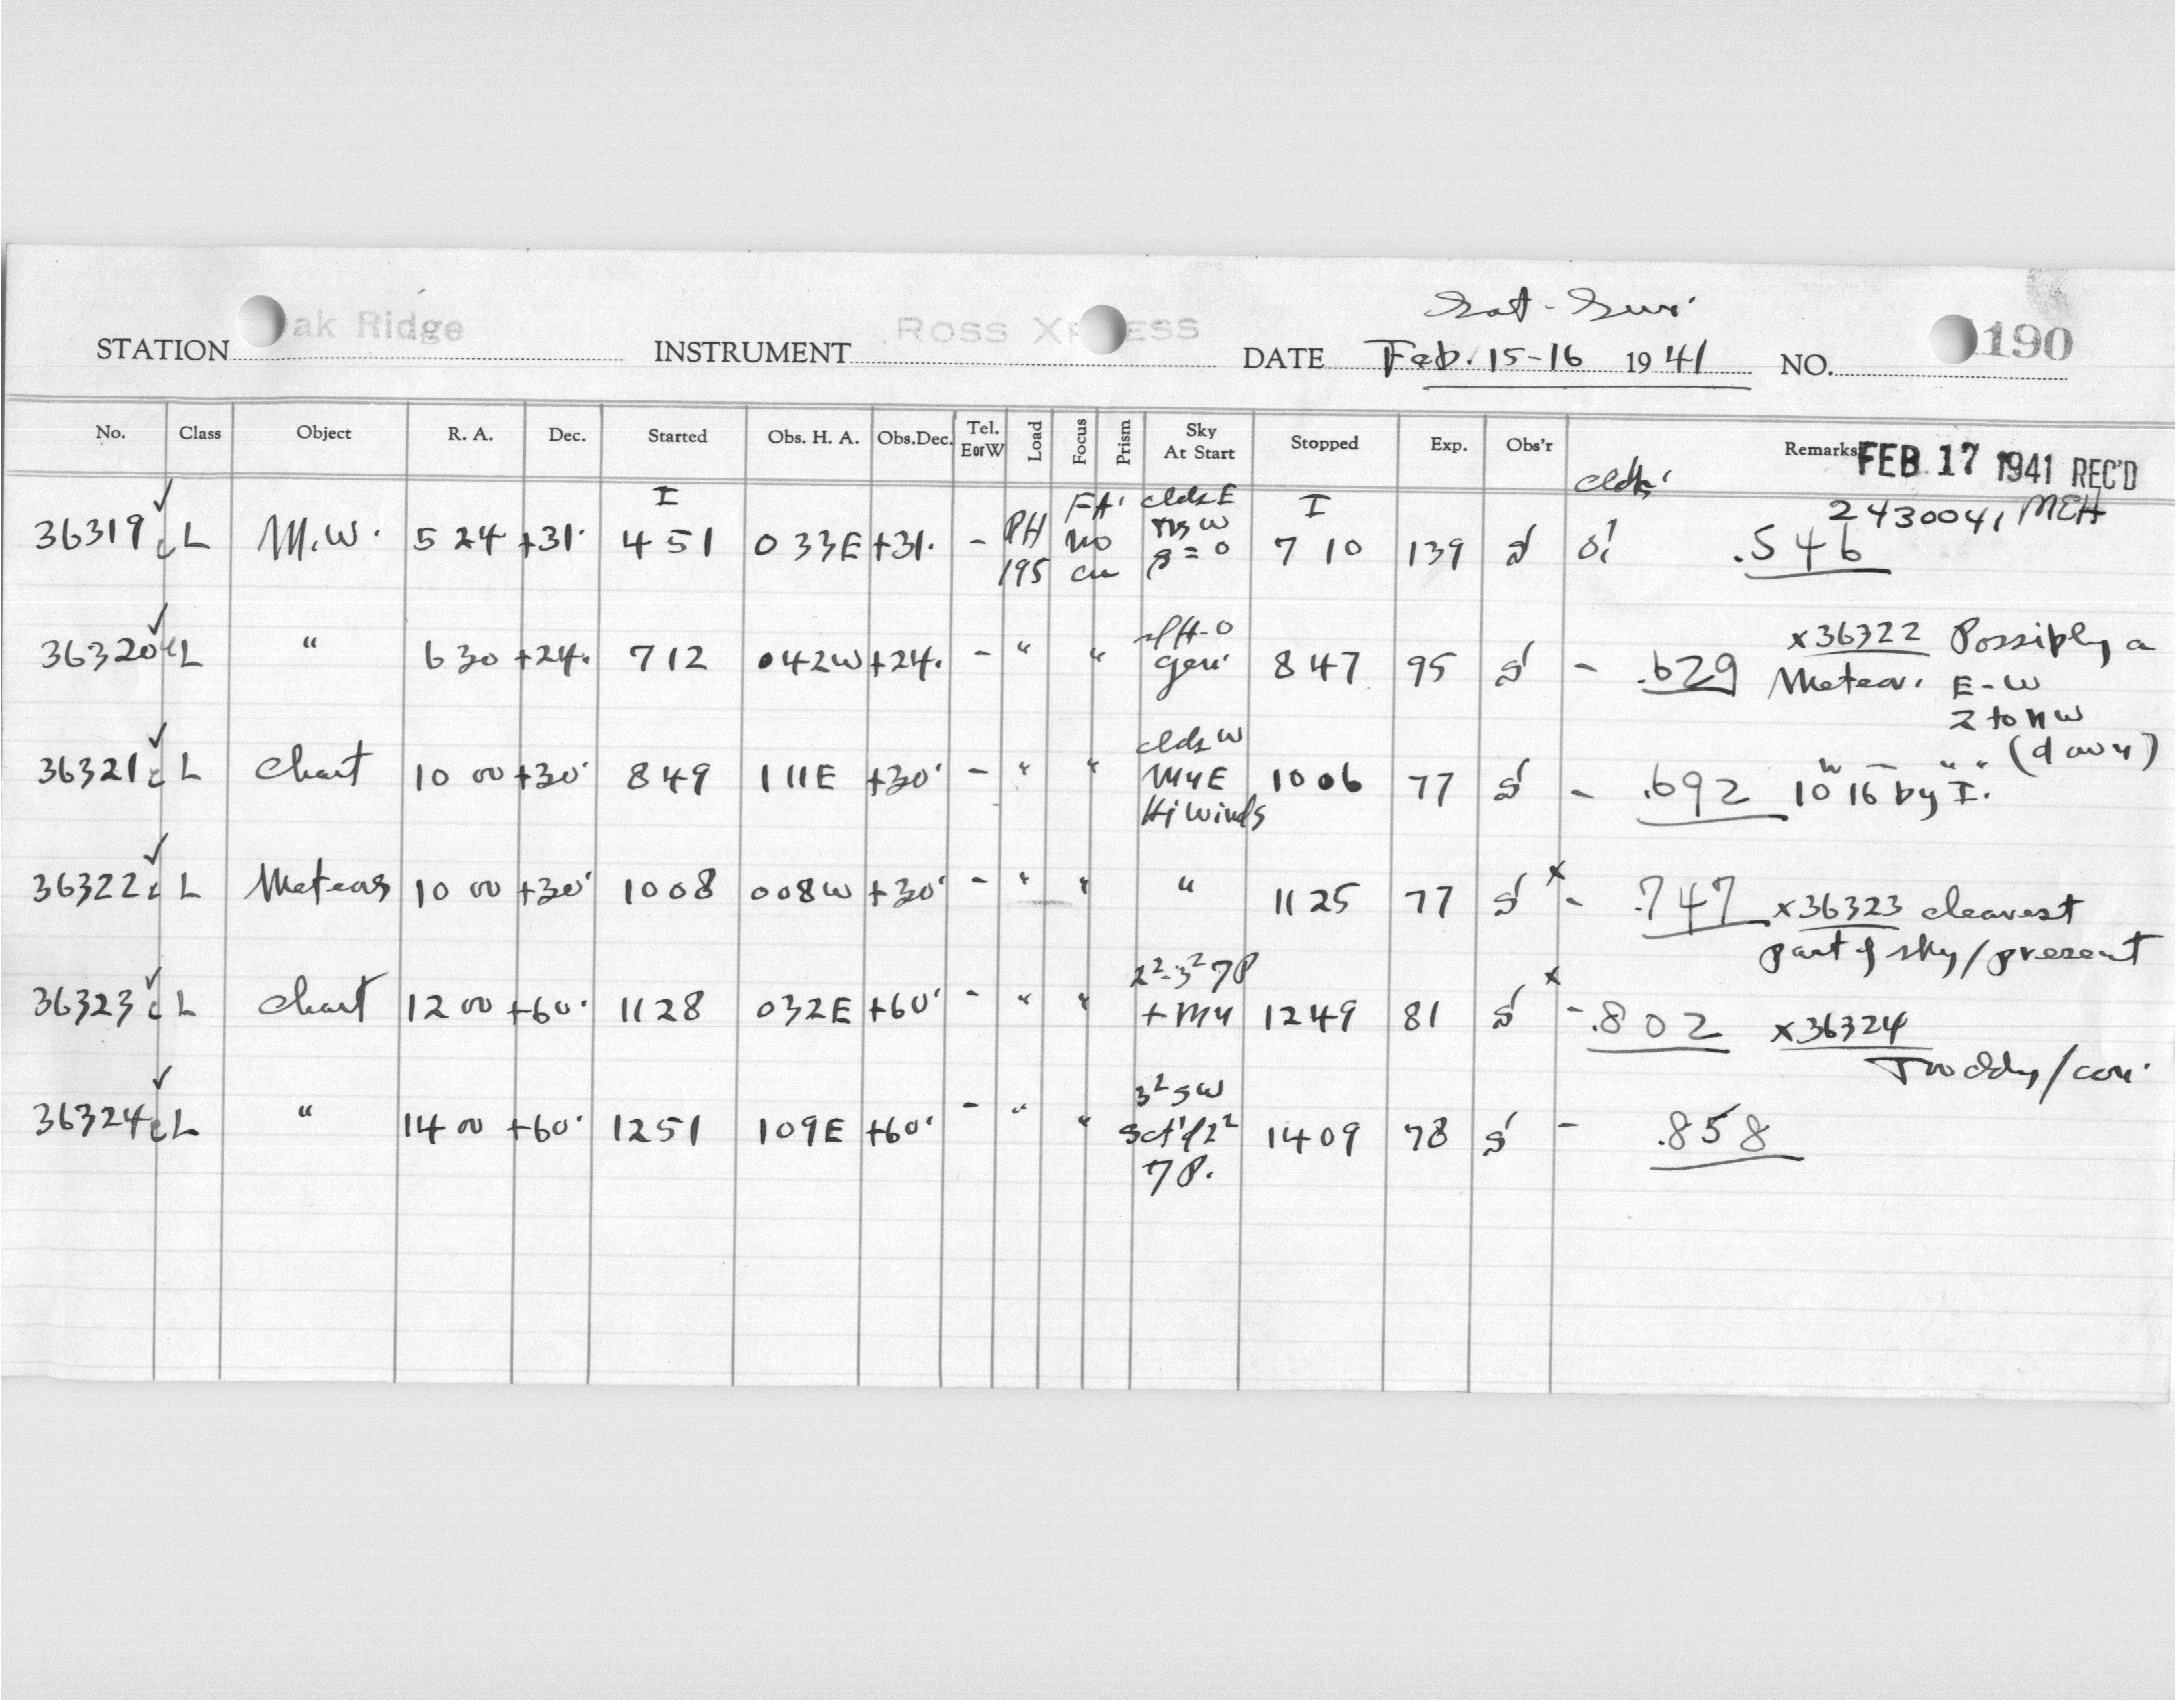 Sat-Sun.
STATION ak Ridge INSTRUMENT ROSS X ESS DATE Feb. 15-16 1941 NO. 190
No. Class Object R. A. Dec. Started Obs. H. A. Obs.Dec. Tel. EorW Load Focus Prism Sky At Start Stopped Exp. Obs'r Remarks FEB 17 1941 REC'D
2430041 MEH
36319 L M.W. 5 24 +31. I 4 51 0 33E +31. - PH 195 FA. no cldsE I 7 10 139 .546
36320 L " 6 30 +24. 7 12 0 42W +24. - " " 8 47 95 - .629 x36322 Possibly a
Meteor. E-W
Z to NW
36321 L Chart 10 00 +30. 8 49 1 11E +30. - " " cldsW MyE Hi Winds 10 06 77 - .692 10 16 by I. " - " " (down)
36322 L Meteors 10 00 +30. 10 08 0 08W +30. - " " " 11 25 77 x - .747 x36323 clearest
part of sky/present
36323 L Chart 12 00 +60. 11 28 0 32E +60. - " " 2²-3² 7P + My 12 49 81 x - .802 x36324
36324 L " 14 00 +60. 12 51 1 09E +60. - " " 3² SW 7P. 14 09 78 - .858